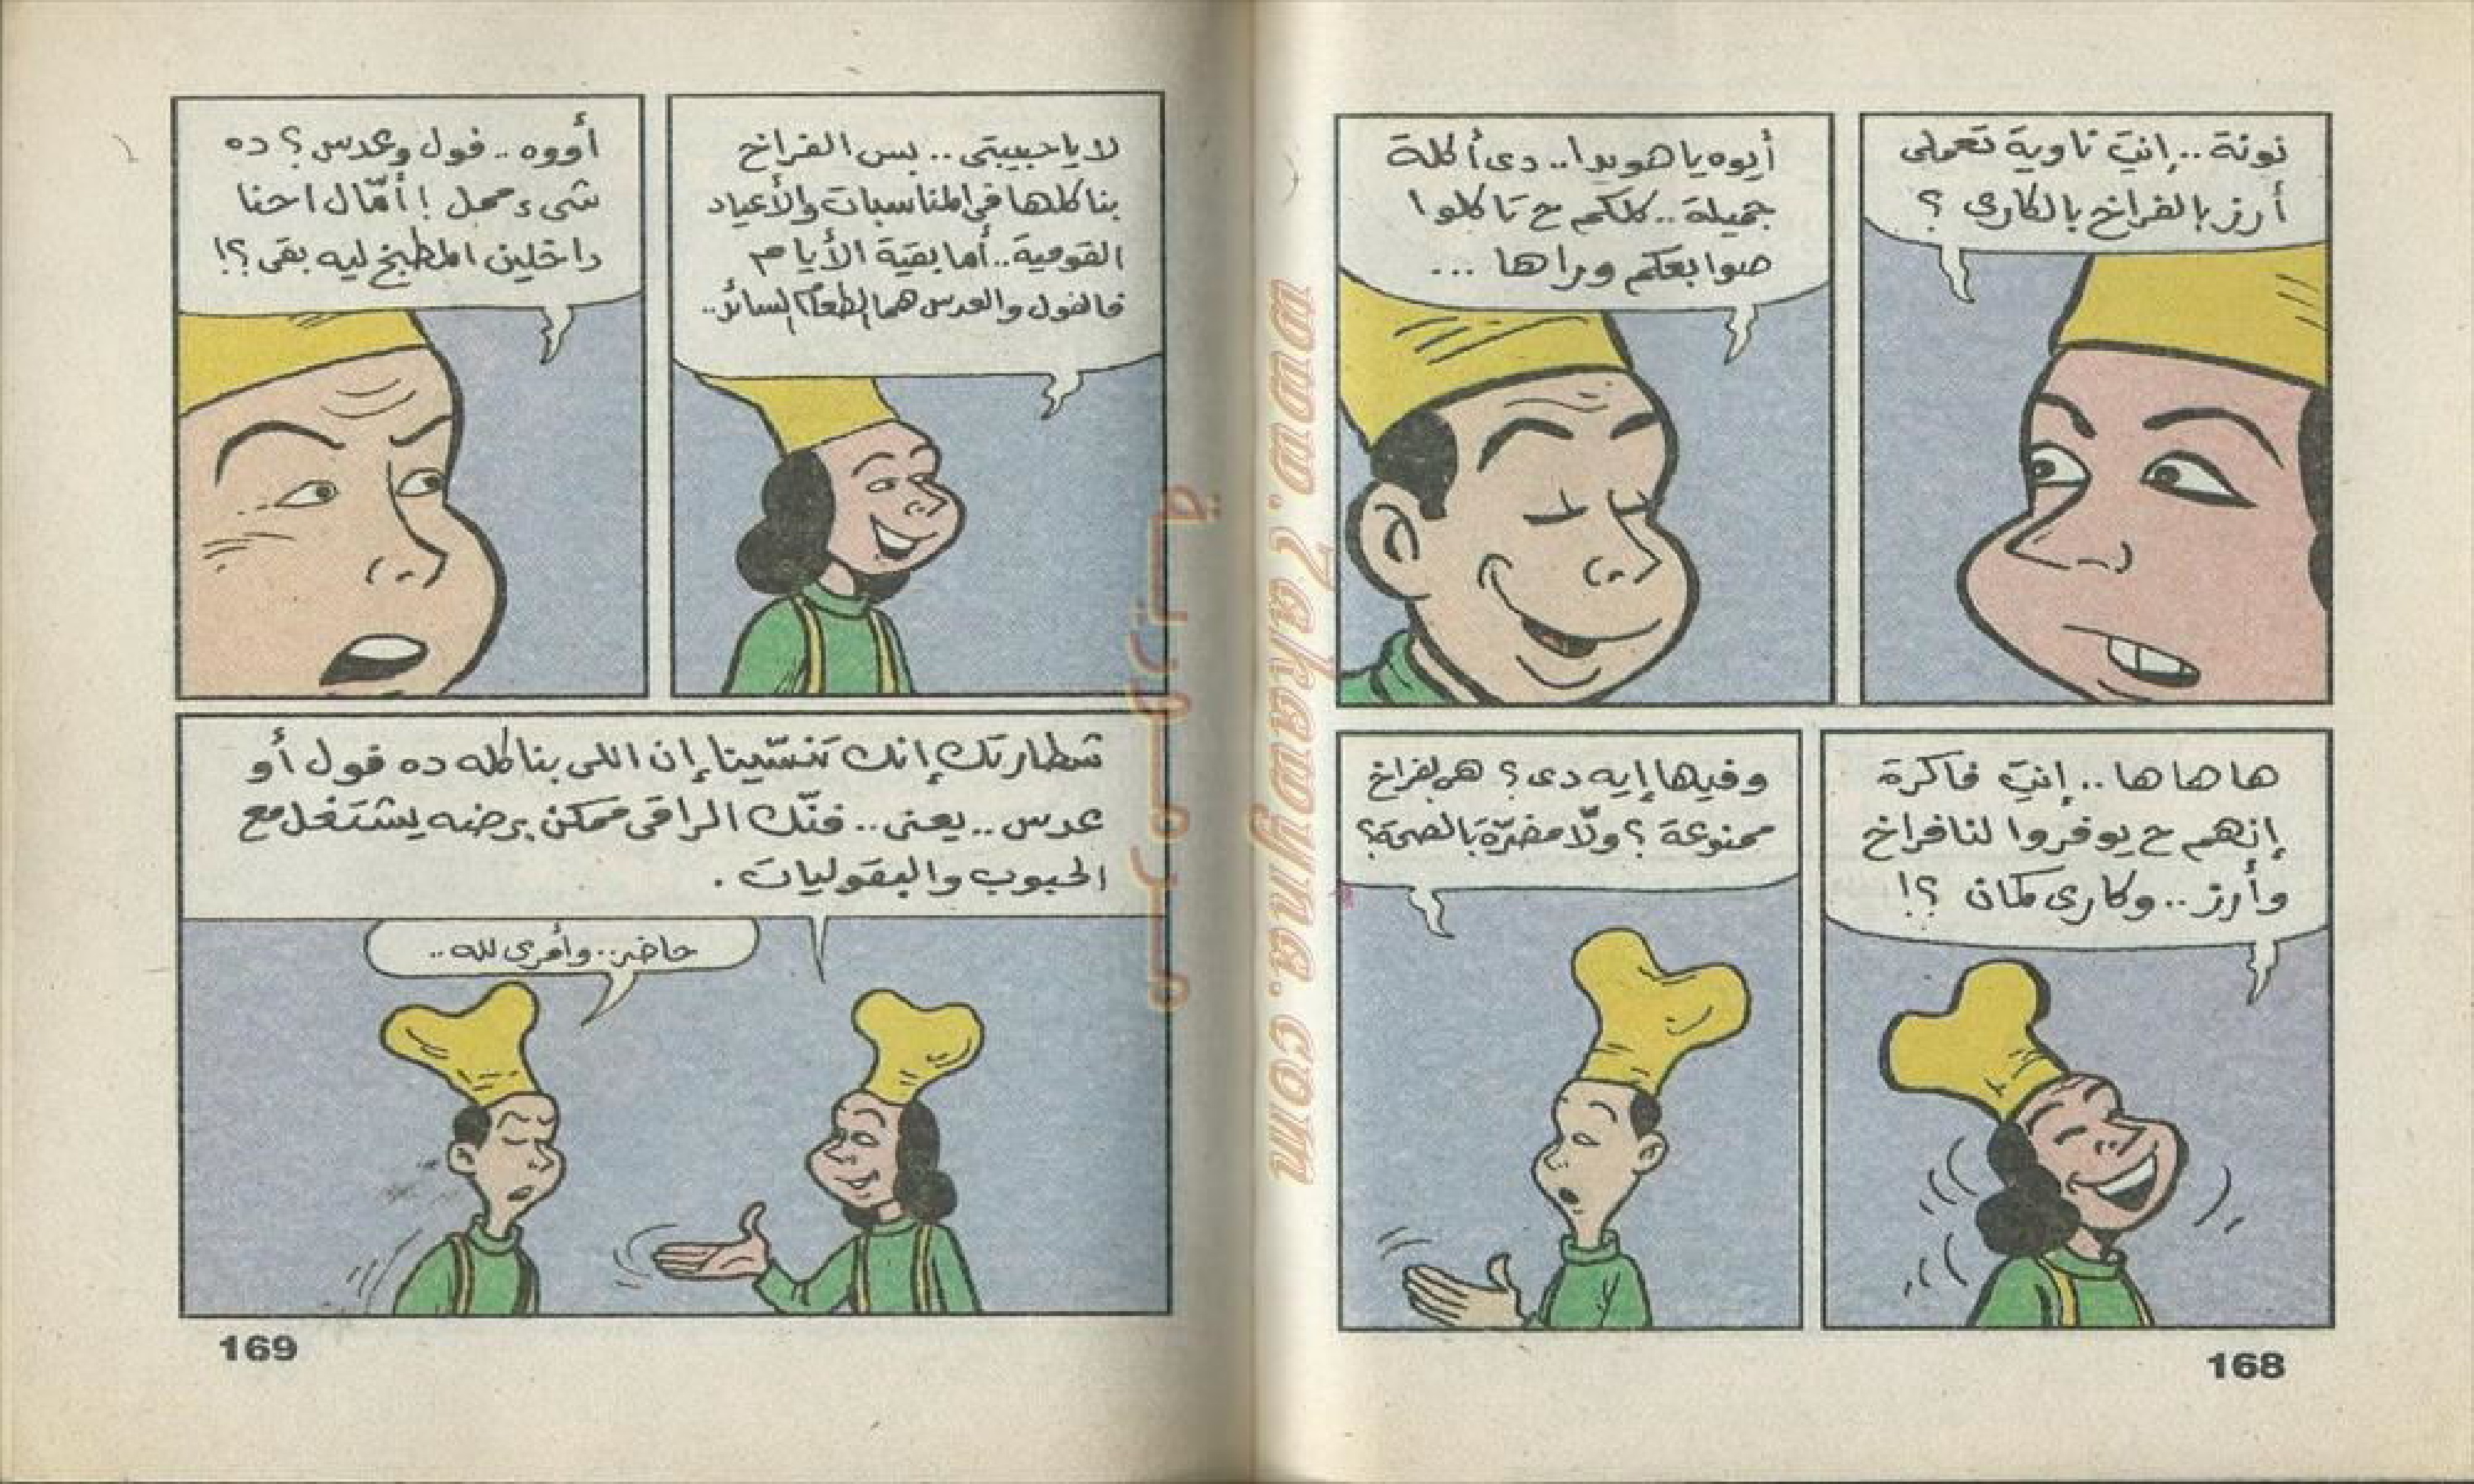 نونة .. إنتِ ناوية تعملى
أرز بالفراخ بالكارى ؟
أيوه يا هويدا .. دى أكلة
جميلة .. كلكم ح تاكلوا
صوابعكم وراها ...
ها ها ها .. إنتِ فاكرة
إنهم ح يوفروا لنا فراخ
وأرز .. وكارى كمان ؟!
وفيها إيه دى ؟ هى الفراخ
ممنوعة ؟ ولّا مضرّة بالصحة ؟
168
لا يا حبيبتى .. بس الفراخ
بناكلها فى المناسبات والأعياد
القومية .. أما بقية الأيام
فالفول والعدس هما الطعام السائد ..
أووه .. فول وعدس ؟ ده
شىء ممل ! أمّال احنا
داخلين المطبخ ليه بقى ؟!
شطارتك إنك تنسّينا إن اللى بناكله ده فول أو
عدس .. يعنى .. فنّك الراقى ممكن برضه يشتغل مع
الحبوب والبقوليات .
حاضر .. وأمرى لله ..
169
مدرسة
www.7akawyna.com